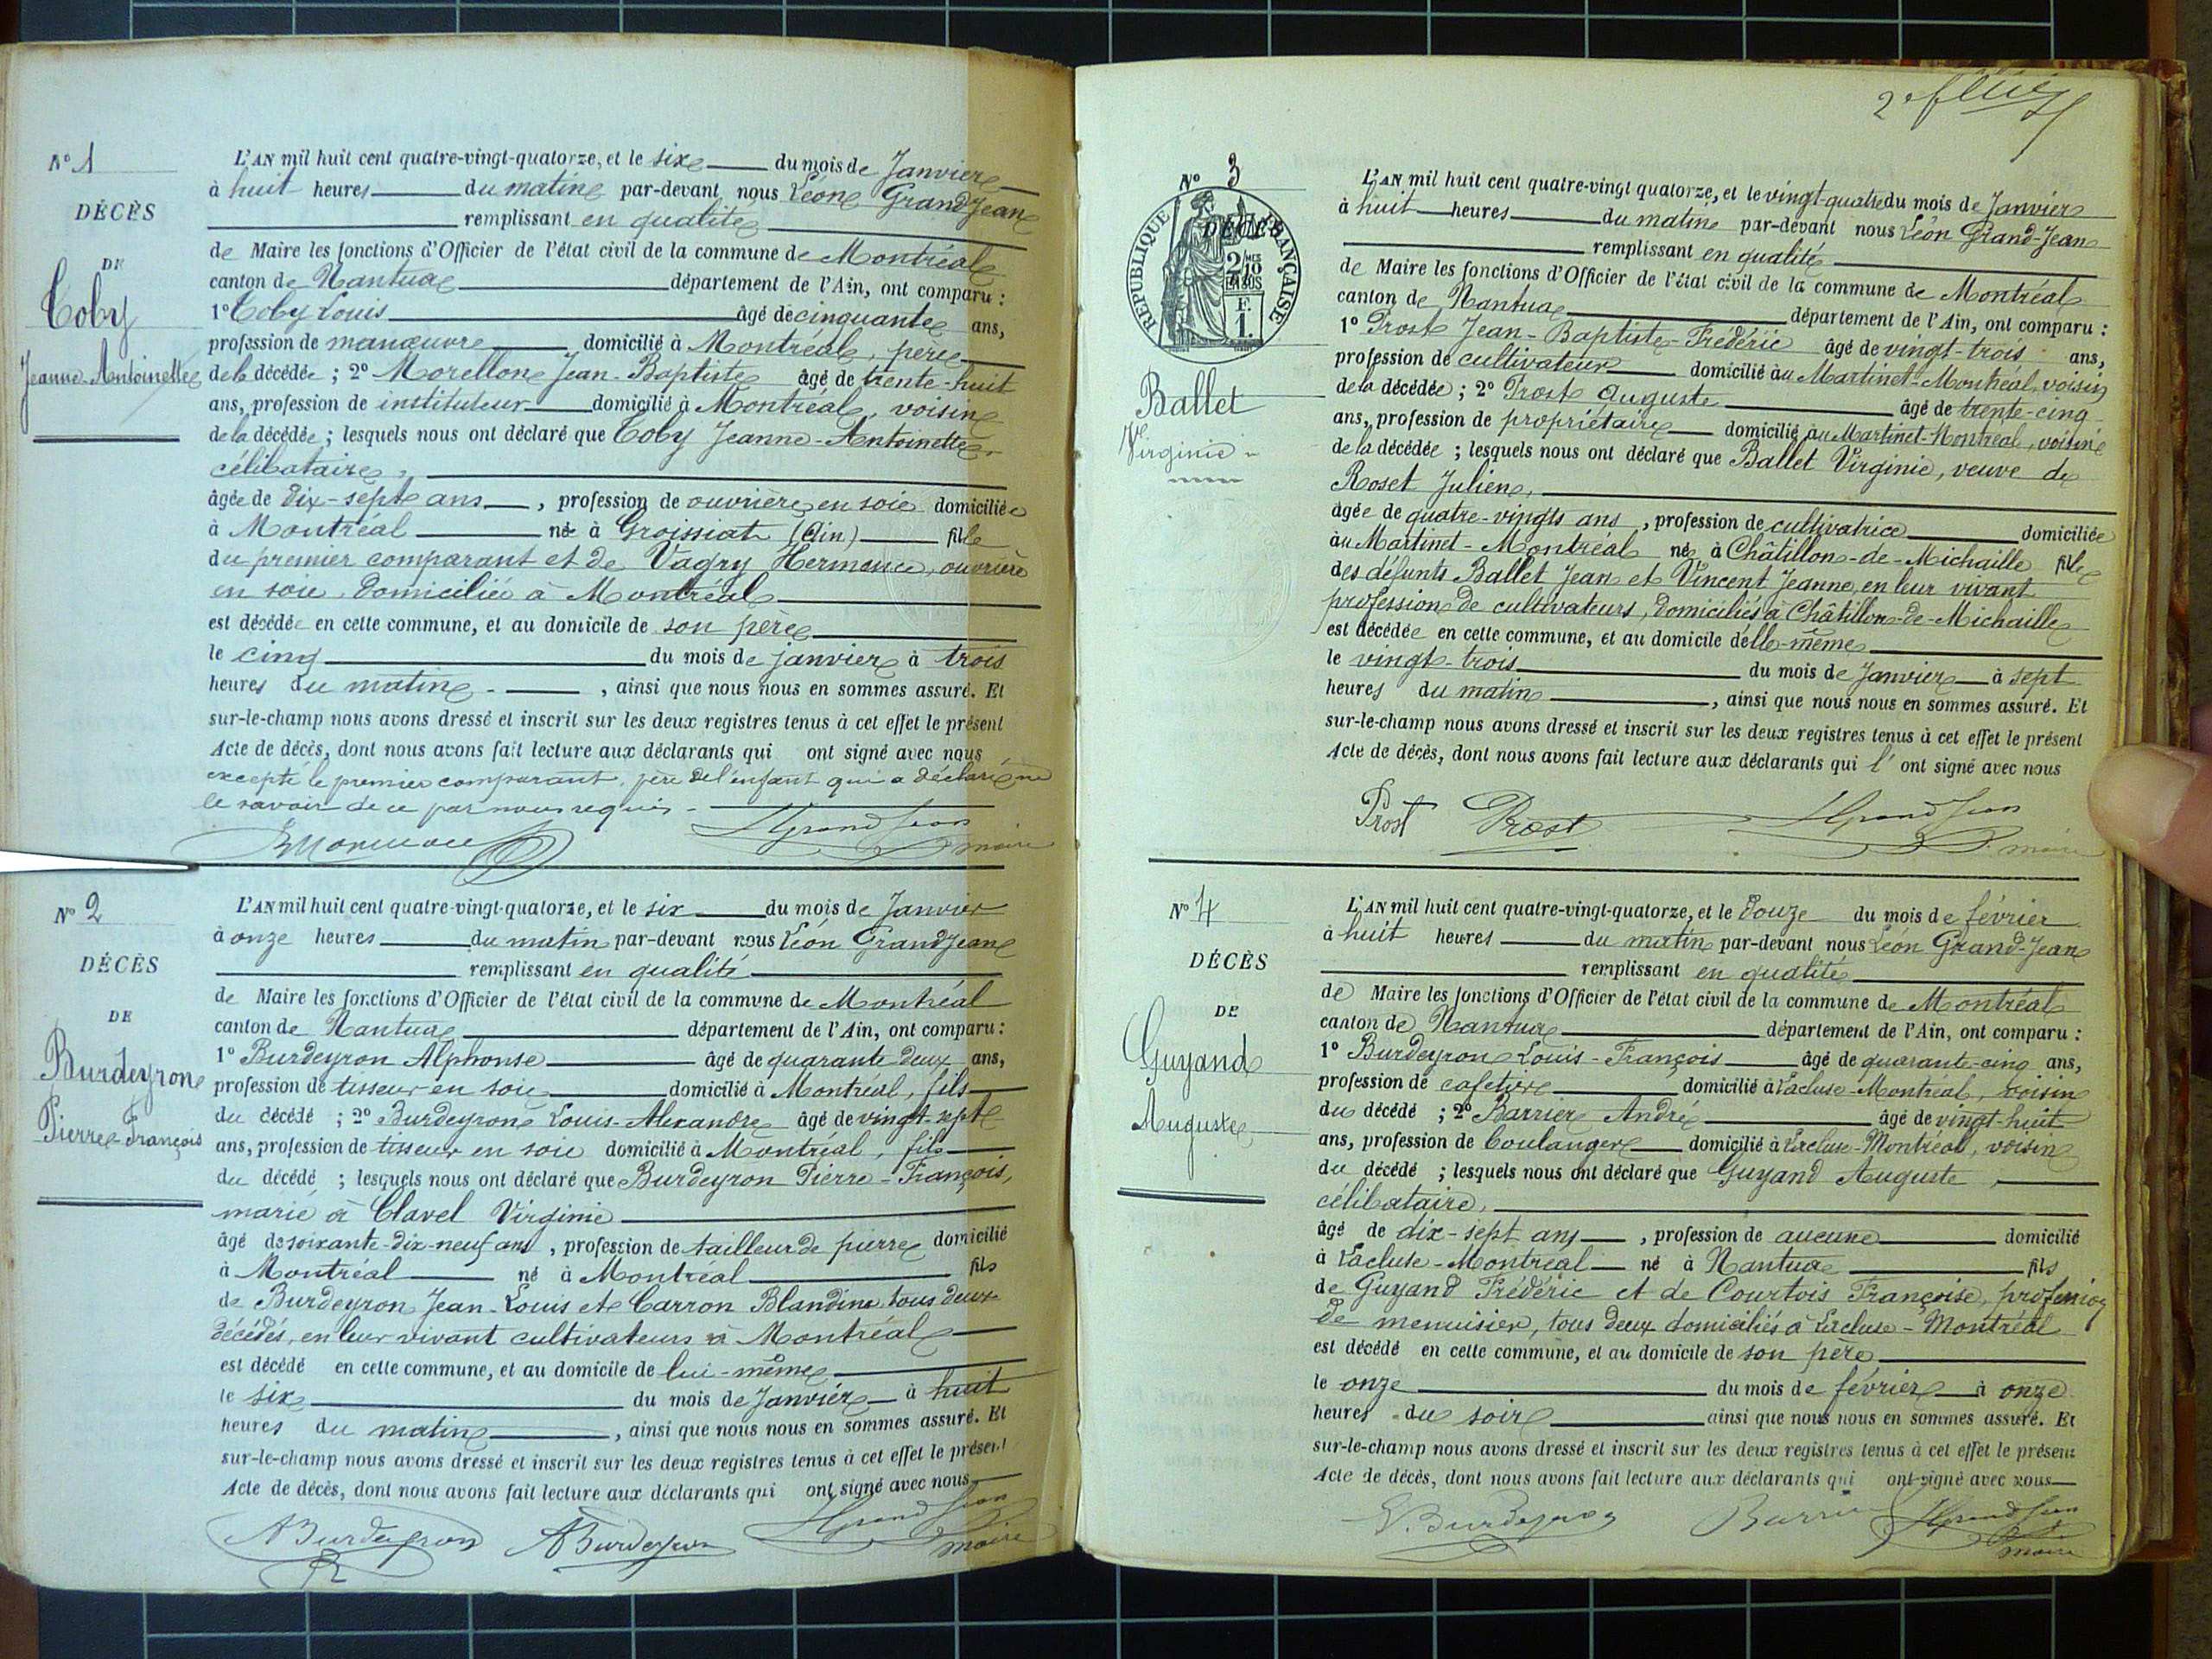 N° 1
DÉCÈS
DE
Coby
Jeanne-Antoinette
L'AN mil huit cent quatre-vingt-quatorze, et le six du mois de Janvier
à huit heures du matin par-devant nous Léon Grandjean
remplissant en qualité
de Maire les fonctions d'Officier de l'état civil de la commune de Montréal
canton de Nantua département de l'Ain, ont comparu :
1° Coby Louis âgé de cinquante ans,
profession de manœuvre domicilié à Montréal, père
de la décédée ; 2° Morellon Jean-Baptiste âgé de trente-huit
ans, profession de instituteur domicilié à Montréal, voisin
de la décédée ; lesquels nous ont déclaré que Coby Jeanne-Antoinette
célibataire,
âgée de dix-sept ans, profession de ouvrière en soie domiciliée
à Montréal né à Groissiat (Ain) fille
du premier comparant et de Vagry Hermance, ouvrière
en soie, domiciliée à Montréal
est décédée en cette commune, et au domicile de son père
le cinq du mois de janvier à trois
heures du matin, ainsi que nous nous en sommes assuré. Et
sur-le-champ nous avons dressé et inscrit sur les deux registres tenus à cet effet le présent
Acte de décès, dont nous avons fait lecture aux déclarants qui ont signé avec nous
excepté le premier comparant, père de l'enfant qui a déclaré ne
le savoir de ce par nous requis.
LGrandJean
maire
N° 2
DÉCÈS
DE
Burdeyron
Pierre-François
L'AN mil huit cent quatre-vingt-quatorze, et le six du mois de Janvier
à onze heures du matin par-devant nous Léon Grandjean
remplissant en qualité
de Maire les fonctions d'Officier de l'état civil de la commune de Montréal
canton de Nantua département de l'Ain, ont comparu :
1° Burdeyron Alphonse âgé de quarante deux ans,
profession de tisseur en soie domicilié à Montréal, fils
du décédé ; 2° Burdeyron Louis-Alexandre âgé de vingt-sept
ans, profession de tisseur en soie domicilié à Montréal, fils
du décédé ; lesquels nous ont déclaré que Burdeyron Pierre-François,
marié à Clavel Virginie
âgé de soixante-dix-neuf ans, profession de tailleur de pierre domicilié
à Montréal né à Montréal fils
de Burdeyron Jean-Louis et Carron Blandine, tous deux
décédés, en leur vivant cultivateurs à Montréal
est décédé en cette commune, et au domicile de lui-même
le six du mois de Janvier à huit
heures du matin, ainsi que nous nous en sommes assuré. Et
sur-le-champ nous avons dressé et inscrit sur les deux registres tenus à cet effet le présent
Acte de décès, dont nous avons fait lecture aux déclarants qui ont signé avec nous
ABurdeyron ABurdeyron LGrandJean
maire
2e
N° 3
DÉCÈS
RÉPUBLIQUE FRANÇAISE
2/10
F.
1.
Ballet
Virginie
L'AN mil huit cent quatre-vingt quatorze, et le vingt-quatre du mois de Janvier
à huit heures du matin par-devant nous Léon Grand-Jean
remplissant en qualité
de Maire les fonctions d'Officier de l'état civil de la commune de Montréal
canton de Nantua département de l'Ain, ont comparu :
1° Prost Jean-Baptiste-Frédéric âgé de vingt-trois ans,
profession de cultivateur domicilié au Martinet-Montréal, voisin
de la décédée ; 2° Prost Auguste âgé de trente-cinq
ans, profession de propriétaire domicilié au Martinet-Montréal, voisin
de la décédée ; lesquels nous ont déclaré que Ballet Virginie, veuve de
Roset Julien,
âgée de quatre-vingts ans, profession de cultivatrice domiciliée
au Martinet-Montréal née à Châtillon-de-Michaille fille
des défunts Ballet Jean et Vincent Jeanne, en leur vivant
profession de cultivateurs, domiciliés à Châtillon-de-Michaille
est décédée en cette commune, et au domicile d'elle-même
le vingt-trois du mois de Janvier à sept
heures du matin, ainsi que nous nous en sommes assuré. Et
sur-le-champ nous avons dressé et inscrit sur les deux registres tenus à cet effet le présent
Acte de décès, dont nous avons fait lecture aux déclarants qui l'ont signé avec nous
Prost Prost LGrandJean
maire
N° 4
DÉCÈS
DE
Guyand
Auguste
L'AN mil huit cent quatre-vingt-quatorze, et le douze du mois de février
à huit heures du matin par-devant nous Léon Grand-Jean
remplissant en qualité
de Maire les fonctions d'Officier de l'état civil de la commune de Montréal
canton de Nantua département de l'Ain, ont comparu :
1° Burdeyron Louis-François âgé de quarante-cinq ans,
profession de cafetier domicilié à Lacluse-Montréal, voisin
du décédé ; 2° Barrier André âgé de vingt-huit
ans, profession de boulanger domicilié à Lacluse-Montréal, voisin
du décédé ; lesquels nous ont déclaré que Guyand Auguste,
célibataire,
âgé de dix-sept ans, profession de aucune domicilié
à Lacluse-Montréal né à Nantua fils
de Guyand Frédéric et de Courtois Françoise, profession
de menuisier, tous deux domiciliés à Lacluse-Montréal
est décédé en cette commune, et au domicile de son père
le onze du mois de février à onze
heures du soir ainsi que nous nous en sommes assuré. Et
sur-le-champ nous avons dressé et inscrit sur les deux registres tenus à cet effet le présent
Acte de décès, dont nous avons fait lecture aux déclarants qui ont signé avec nous
Burdeyron LGrandJean
maire